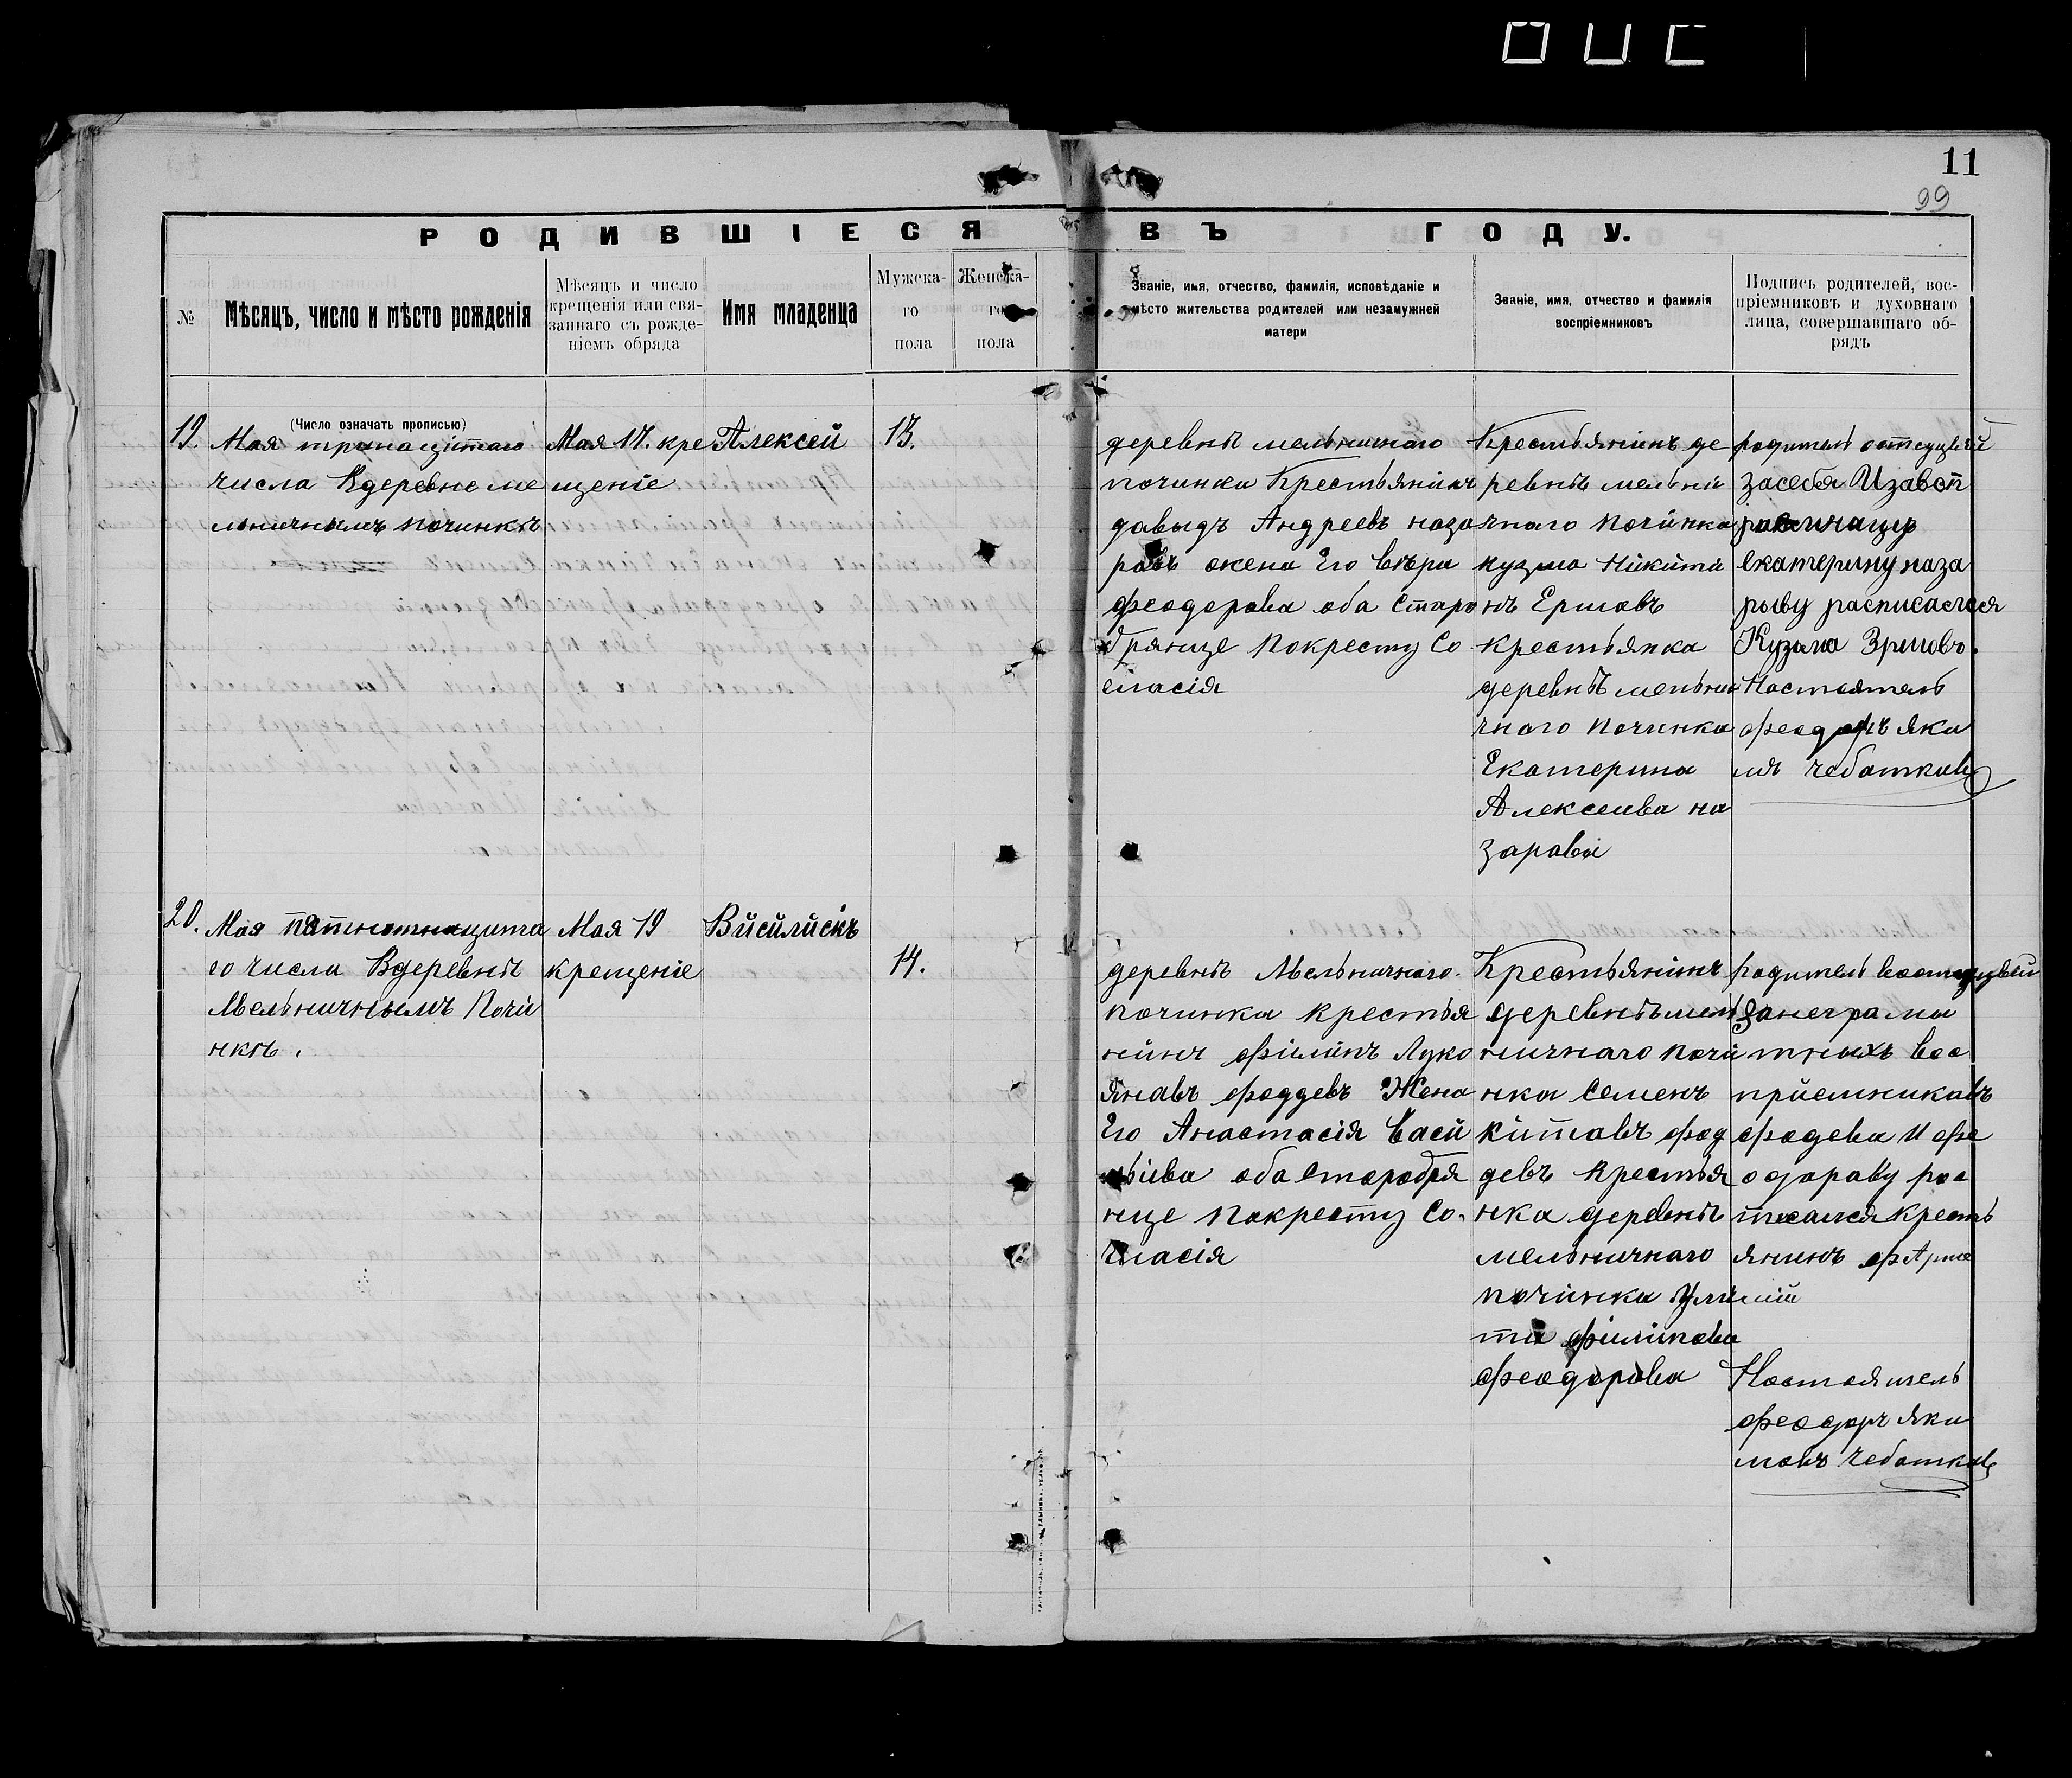 11
99
РОДИВШІЕСЯ ВЪ ГОДУ.
№
Мѣсяцъ, число и мѣсто рожденія
Мѣсяцъ и число
крещенія или свя-
заннаго съ рожде-
ніемъ обряда
Имя младенца
Мужска-
го
пола
Женска-
го
пола
Званіе, имя, отчество, фамилія, исповѣданіе и
мѣсто жительства родителей или незамужней
матери
Званіе, имя, отчество и фамилія
воспріемниковъ
Подпись родителей, вос-
пріемниковъ и духовнаго
лица, совершавшаго об-
рядъ
(Число означать прописью)
19.
Мая тринацитаго
числа Вдеревне ме
льничнымъ починкѣ
Мая 17. кре
щеніе
Алексей
13.
деревны мельничнаго
починка Крестьянинъ
давыдъ Андреевъ наза
ровъ жена Его вѣра
феодорова оба Старо
брянце Покресту Со
гласія
Крестьянинъ де
ревнѣ мельни
чнаго починка
кузма Никити
нъ Ершовъ
крестьянка
деревнѣ мельни
чного починка
Екатерина
Алексеива на
зарава
родитель
засебя И
екатерину наза
рыву расписался
Кузьма
Настоятель
феодоръ яки
мъ чебатковъ
20.
Мая
го числа Вдеревнѣ
Мельничнымъ Почи
нкѣ.
Мая 19
крещеніе
Вйсйлйскъ
14.
деревнѣ Мельничнаго
починка крестья
нинъ филипъ Луко
янавъ фаддевъ Жена
Его Анастасія Васи
льива оба Старобря
нце Покресту Со
гласія
Крестьянинъ
деревнѣ мель
ничнаго почи
нка Семенъ
китавъ фад
девъ крестья
нка деревнѣ
мельничнаго
починка Ули
та филипова
феодорова
родитель
занеграма
тныхъ вос
прйемникавъ
фадева и фе
одораву рос
писался кресть
янинъ
Настоятель
феодоръ яки
мовъ чебатковъ